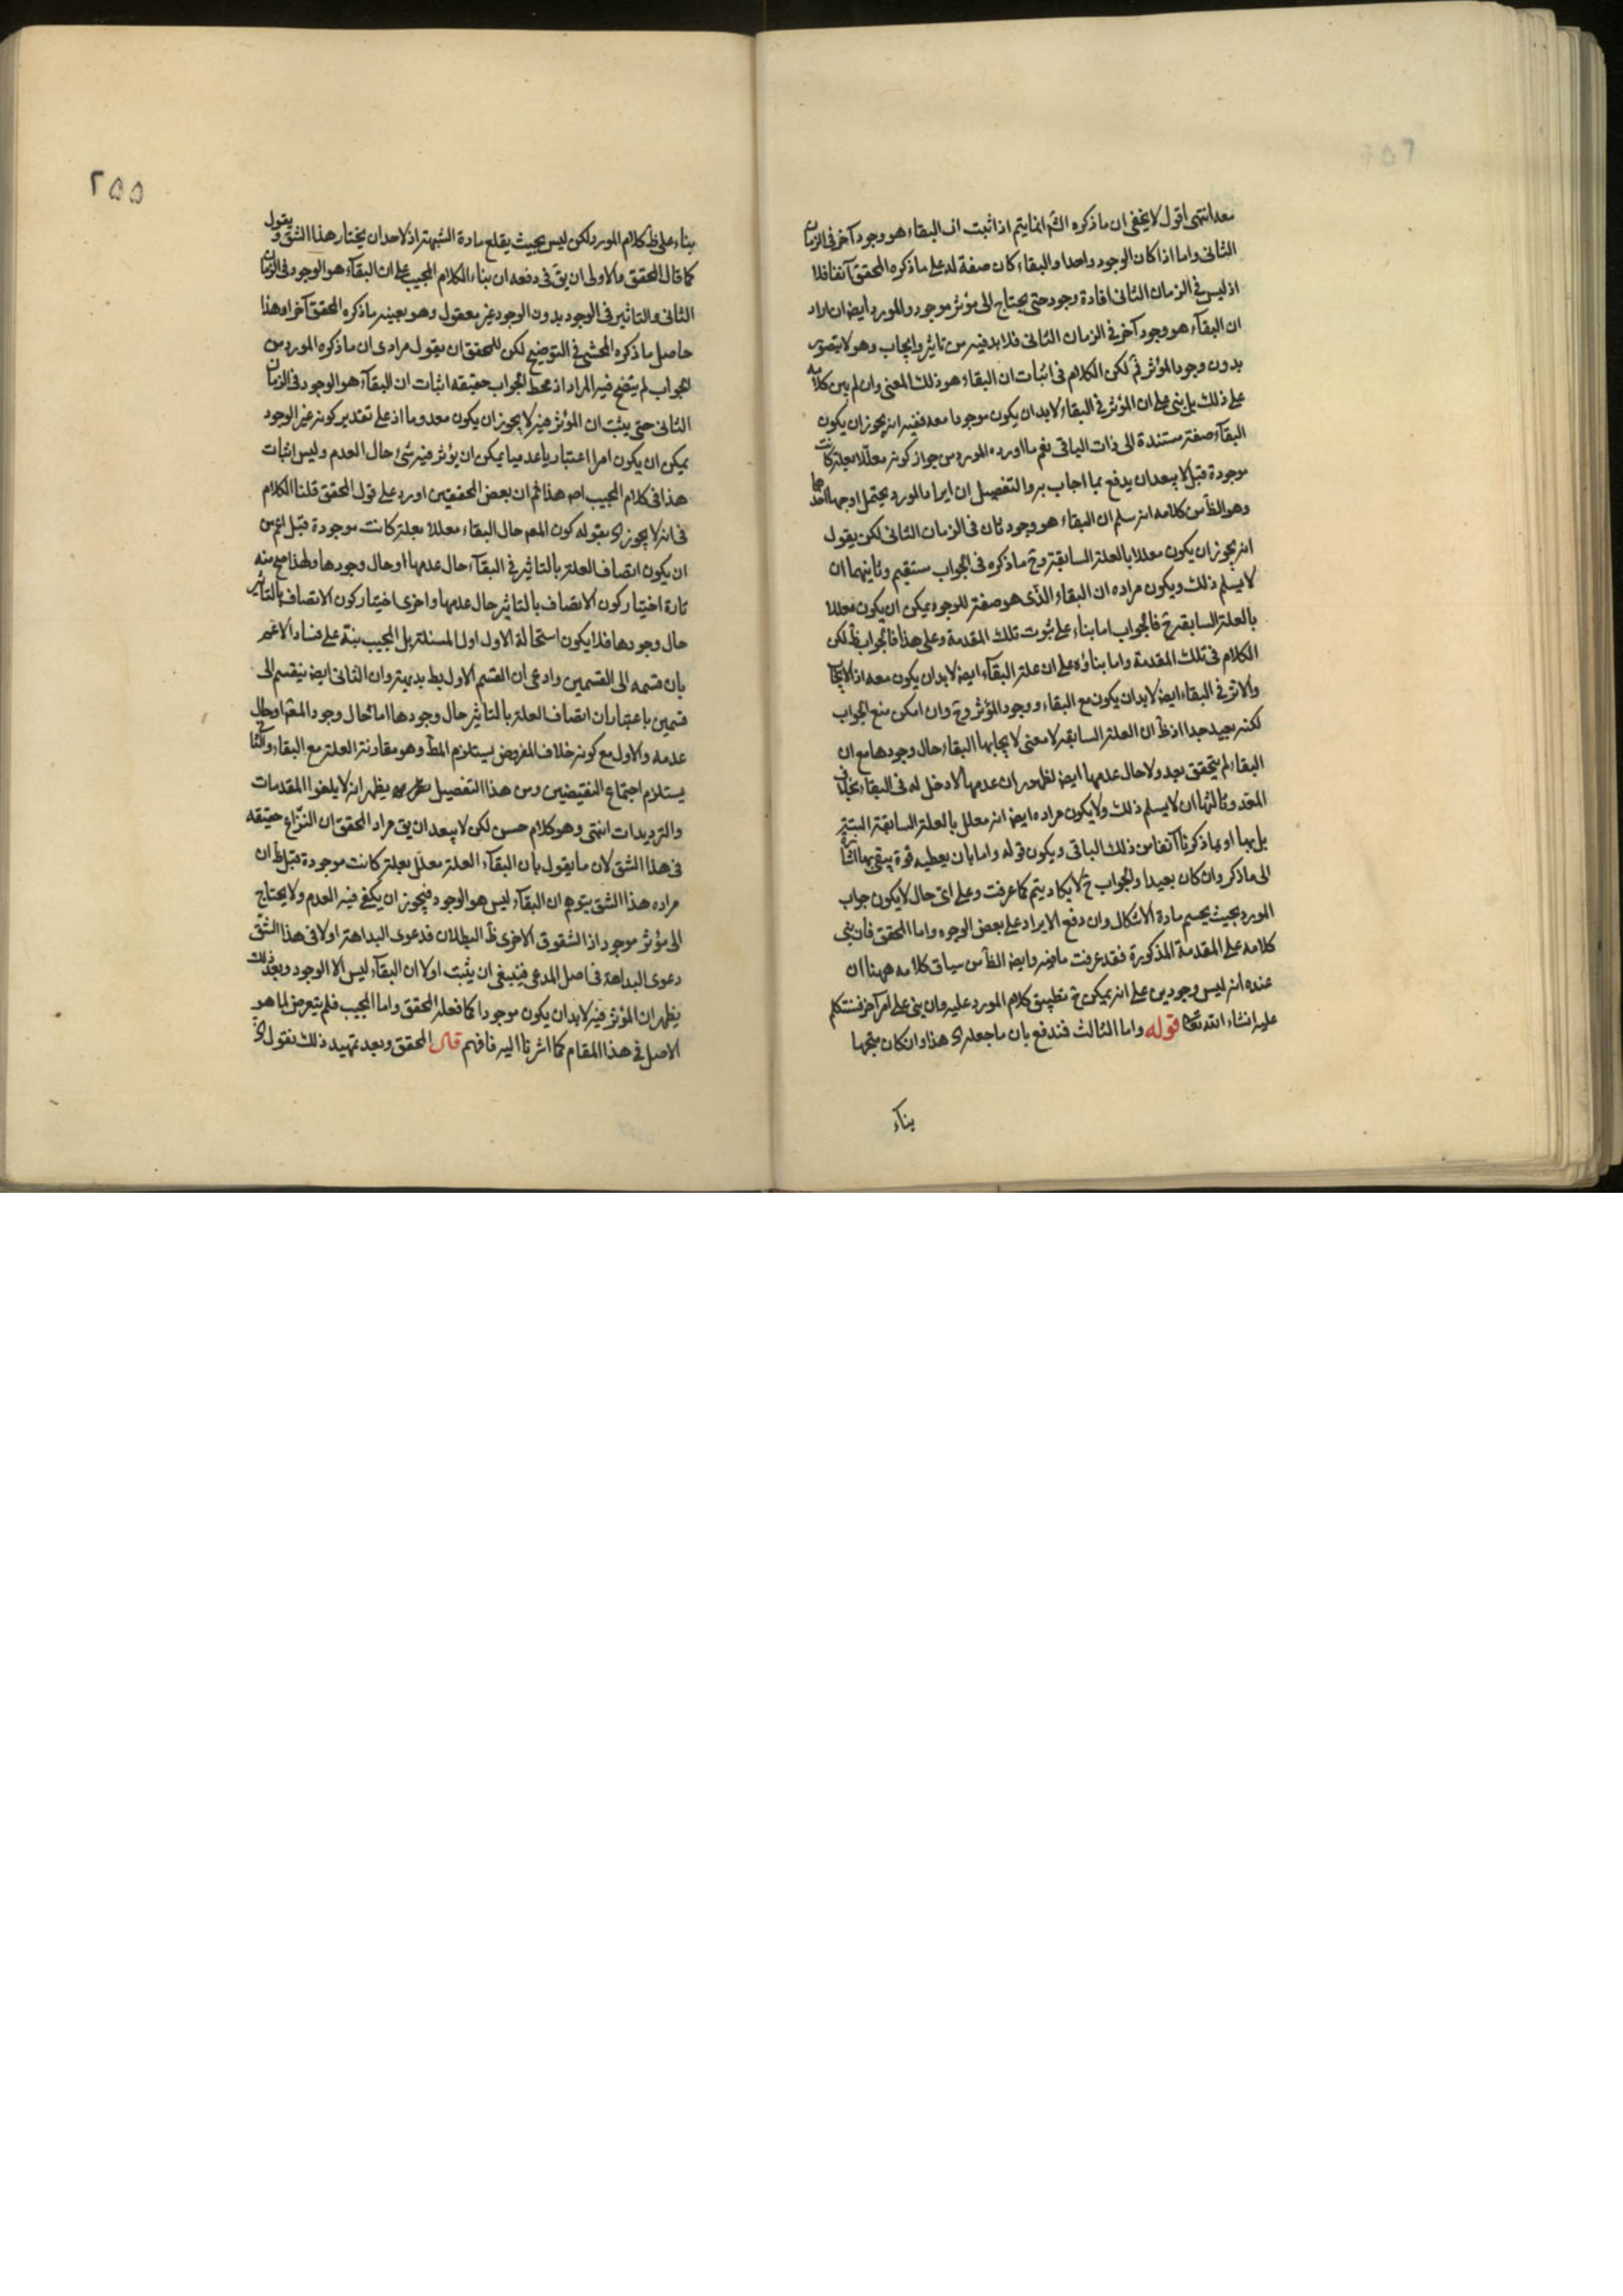 معه انتهى اقول لا يخفى ان ما ذكره الشم انما يتم اذا ثبت ان البقاء هو وجود آخر فى الزمان
الثانى واما اذا كان الوجود واحدا والبقاء كان صفة له على ما ذكره المحقق آنفا فلا
اذ ليس فى الزمان الثانى افادة وجود حتى يحتاج الى مؤثر موجود والمورد ايضا ان اراد
ان البقآء هو وجود آخر فى الزمان الثانى فلا بد فيه من تاثير وايجاب وهو لا يتصور
بدون وجود المؤثر ثم لكن الكلام فى اثبات ان البقاء هو ذلك المعنى وان لم يبن كلامه
على ذلك بل بنى على ان المؤثر فى البقاء لا بد ان يكون موجودا معه ففيه انه يجوز ان يكون
البقآء صفة مستندة الى ذات الباقى نعم ما اورده المورد من جواز كونه معللا بعلة كانت
موجودة قبل لا يبعد ان يدفع بما اجاب به والتفصيل ان ايراد المورد يحتمل اوجها احدها
وهو الظ من كلامه انه سلم ان البقاء هو وجود ثان فى الزمان الثانى لكن يقول
انه يجوز ان يكون معللا بالعلة السابقة وح ما ذكره فى الجواب مستقيم وثانيهما ان
لا يسلم ذلك ويكون مراده ان البقاء الذى هو صفة للوجود يمكن ان يكون معللا
بالعلة السابقة ح فالجواب اما بناء على ثبوت تلك المقدمة وعلى هذا فالجواب ظ لكن
الكلام فى تلك المقدمة واما بناؤه على ان علة البقآء ايضا لا بد ان يكون معه اذ الايجاد
والاثر فى البقاء ايضا لا بد ان يكون مع البقاء ووجود المؤثر وح وان امكن منع الجواب
لكنه بعيد جدا اذ ظ ان العلة السابقة لا معنى لايجابها البقاء حال وجودها مع ان
البقاء لم يتحقق بعد ولا حال عدمها ايضا لظهور ان عدمها لا دخل له فى البقاء بخلاف
المعد وثالثها ان لا يسلم ذلك ولا يكون مراده ايضا انه معلل بالعلة السابقة البتة
بل بها او بما ذكرنا آنفا من ذلك الباقى ويكون قوله واما بان يعطيه قوة يبقى بها
الى ما ذكر وان كان بعيدا والجواب ح لا يكاد يتم كما عرفت وعلى اى حال لا يكون جواب
المورد بحيث يحسم مادة الاشكال وان دفع الايراد على بعض الوجوه واما المحقق فان بنى
كلامه على المقدمة المذكورة فقد عرفت ما فيه وايضا الظ من سياق كلامه ههنا ان
عنده انه ليس وجودين على انه يمكن ح تطبيق كلام المورد عليه وان بنى على امر آخر فنتكلم
عليه انشاء الله تعا قوله واما الثالث فندفع بان ما جعله اى هذا وان كان متجها
بناء
٢٥٥
بناء على ظ كلام المورد لكن ليس بحيث يقلع مادة الشبهة اذ لاحد ان يختار هذا الشق ويقول
كما قال المحقق والاولى ان يق فى دفعه ان بناء الكلام المجيب على ان البقآء هو الوجود فى الزمان
الثانى والتاثير فى الوجود بدون الوجود غير معقول وهو بعينه ما ذكره المحقق آخرا وهذا
حاصل ما ذكره المحشى فى التوضيح لكن للمحقق ان يقول مرادى ان ما ذكره المورد من
الجواب لم يتضح فيه المراد اذ محط الجواب حقيقة اثبات ان البقآء هو الوجود فى الزمان
الثانى حتى يثبت ان المؤثر فيه لا يجوز ان يكون معدوما اذ على تقدير كونه غير الوجود
يمكن ان يكون امرا اعتباريا عدميا يمكن ان يؤثر فيه شئ حال العدم وليس اثبات
هذا فى كلام المجيب اصه هذا ثم ان بعض المحققين اورد على قول المحقق قلنا الكلام
فى انه لا يجوز اى بقوله كون المعم حال البقاء معللا بعلة كانت موجودة قبل اعم من
ان يكون اتصاف العلة بالتاثير فى البقآء حال عدمها او حال وجودها ولهذا صح منه
تارة اختيار كون الاتصاف بالتاثير حال عدمها واخرى اختيار كون الاتصاف بالتاثير
حال وجودها فلا يكون استحالة الاول اول المسئلة بل المجيب نبه على فساد الاعم
بان قسمه الى القسمين وادعى ان القسم الاول بط بديهة وان الثانى ايضا ينقسم الى
قسمين باعتبار ان اتصاف العلة بالتاثير حال وجودها اما حال وجود المعم او حال
عدمه والاول مع كونه خلاف المفروض يستلزم المط وهو مقارنة العلة مع البقاء والثانى
يستلزم اجتماع النقيضين ومن هذا التفصيل يظهر انه لا يلغوا المقدمات
والترديدات انتهى وهو كلام حسن لكن لا يبعد ان يق مراد المحقق ان النزاع حقيقة
فى هذا الشق لان ما يقول بان البقآء العلة معلل بعلة كانت موجودة قبل ظ ان
مراده هذا الشق بتوهم ان البقآء ليس هو الوجود فيجوز ان يكفى فيه العدم ولا يحتاج
الى مؤثر موجود اذ الشقوق الاخرى ظ البطلان فدعوى البداهة اولا فى هذا الشق
دعوى البداهة فى اصل المدعى فينبغى ان يثبت اولا ان البقآء ليس الا الوجود وبعد ذلك
يظهر ان المؤثر فيه لا بد ان يكون موجودا كما فعله المحقق واما المجيب فلم يتعرض لما هو
الاصل فى هذا المقام كما اشرنا اليه فافهم قال المحقق وبعد تمهيد ذلك نقول